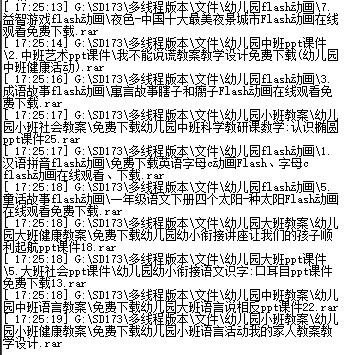 [ 17:25:13] G:\SD173\多线程版本\文件\幼儿园flash动画\7.
益智游戏flash动画\夜色-中国十大最美夜景城市Flash动画在线
观看免费下载.rar
[ 17:25:14] G:\SD173\多线程版本\文件\幼儿园中班ppt课件
\2.中班艺术ppt课件\我不能说谎教案教学设计免费下载(幼儿园
中班健康活动).rar
[ 17:25:16] G:\SD173\多线程版本\文件\幼儿园flash动画\3.
成语故事flash动画\寓言故事瞎子和聋子Flash动画在线观看免
费下载.rar
[ 17:25:17] G:\SD173\多线程版本\文件\幼儿园小班教案\幼儿
园小班社会教案\免费下载幼儿园中班科学教研课数学:认识椭圆
ppt课件25.rar
[ 17:25:17] G:\SD173\多线程版本\文件\幼儿园flash动画\1.
汉语拼音flash动画\免费下载英语字母c动画Flash、字母c
flash动画在线观看、下载.rar
[ 17:25:18] G:\SD173\多线程版本\文件\幼儿园flash动画\5.
童话故事flash动画\一年级语文下册四个太阳-种太阳Flash动画
在线观看免费下载.rar
[ 17:25:18] G:\SD173\多线程版本\文件\幼儿园大班教案\幼儿
园大班健康教案\免费下载幼儿园幼小衔接讲座让我们的孩子顺
利起航ppt课件18.rar
[ 17:25:18] G:\SD173\多线程版本\文件\幼儿园大班ppt课件
\5.大班社会ppt课件\幼儿园幼小衔接语文识字:口耳目ppt课件
免费下载13.rar
[ 17:25:18] G:\SD173\多线程版本\文件\幼儿园中班教案\幼儿
园中班语言教案\免费下载幼儿园大班语言说相反ppt课件22.rar
[ 17:25:19] G:\SD173\多线程版本\文件\幼儿园小班教案\幼儿
园小班健康教案\免费下载幼儿园小班语言活动我的家人教案教
学设计.rar